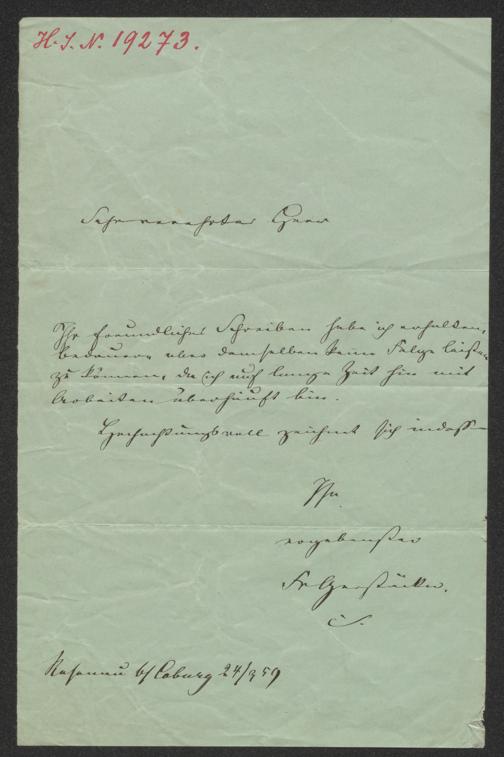 H. I. N. 19273.
Sehr verehrter Herr
Ihr freundliches Schreiben habe ich erhalten,
bedauere aber demselben keine Folge leisten
zu können, da ich auf lange Zeit hin mit
Arbeiten überhäuft bin.
Hochachtungsvoll zeichnet sich indeß
Ihr
ergebenster
Fr Gerstäcker.
Rosenau b/Coburg 24/3 59